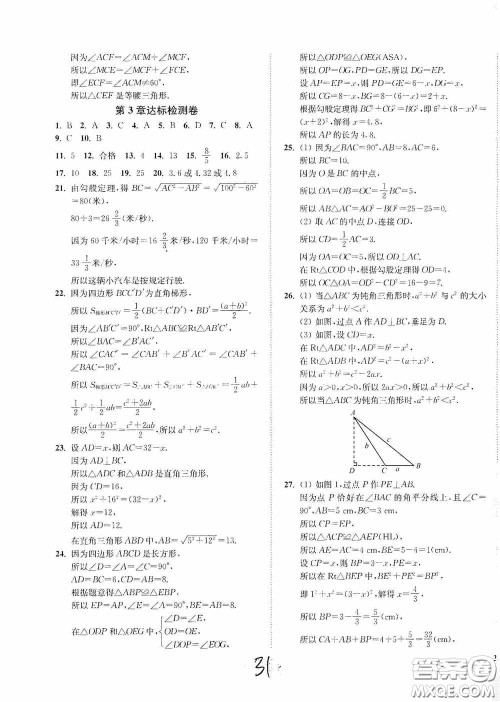 因为∠ACF=∠ACM+∠MCF,
所以∠MCE=∠MCF+∠FCE,
即∠ACE≠60°,
所以△CEF是等腰三角形.
第3章达标检测卷
1. B 2. A 3. C 4. A 5. B 6. D 7. C 8. A
9. C 10. B
11. 5 12. 合格 13. 4 14. 13 15. 8/5 16. 2.5
17. 10 18. 25 19. 20 20. 3.6或4.32或4.8
21. 由勾股定理,得BC=√(AC²-AB²)=√(100²-60²)
=80(米),
80÷3=26 2/3(米/秒),
因为60千米/小时=16 2/3米/秒,120千米/小时=
33 1/3米/秒,
所以这辆小汽车是按规定行驶.
22. 因为四边形BCC'D'为直角梯形,
所以S梯形BCC'D'=1/2(BC+C'D')·BD'=(a+b)²/2.
因为∠AB'C'=90°,Rt△ABC≌Rt△AB'C',
所以∠BAC=∠B'AC',
所以∠CAC'=∠CAB'+∠B'AC'=∠CAB'+
∠BAC=90°,
所以S梯形BCC'D'=S△ABC+S△CAC'+S△D'AC'=1/2ab+
1/2c²+1/2ab=(c²+2ab)/2,
所以(a+b)²/2=(c²+2ab)/2,所以a²+b²=c².
23. 设AD=x,则AC=32-x.
因为AD⊥BC,
所以△ADC和△ADB是直角三角形.
因为CD=16,
所以x²+16²=(32-x)²,
解得x=12,
所以AD=12.
在直角三角形ABD中,AB=√(5²+12²)=13.
24. 因为四边形ABCD是长方形,
所以∠D=∠A=∠C=90°,
AD=BC=6,CD=AB=8.
根据题意得△ABP≌△EBP,
所以EP=AP,∠E=∠A=90°,BE=AB=8,
在△ODP和△OEG中,{∠D=∠E,
OD=OE,
∠DOP=∠EOG,
所以△ODP≌△OEG(ASA),
所以OP=OG,PD=GE,所以DG=EP.
设AP=EP=x,则PD=GE=6-x,DG=x,
所以CG=8-x,BG=8-(6-x)=2+x.
根据勾股定理得BC²+CG²=BG²,即6²+(8-x)²=
(x+2)²,解得x=4.8,
所以AP的长为4.8.
25. (1) 因为∠BAC=90°,AB=6,AC=8,
所以BC=10.
因为O是BC的中点,
所以OA=OB=OC=1/2BC=5,
所以AB△AC=AO²-BO²=25-25=0.
(2) 取AC的中点D,连接OD,
所以CD=1/2AC=3.
因为OA=OC=5,所以OD⊥AC.
在Rt△COD中,OD²=OC²-CD²=16,
所以OC△OA=OD²-CD²=16-9=7.
26. (1) 当△ABC为钝角三角形时,a²+b²与c²的大小
关系为a²+b²<c².
(2) 如图,过点A作AD⊥BC,垂足为D.
(3) 如图,设CD=x.
在Rt△ADC中,AD²=b²-x²,
在Rt△ADB中,AD²=c²-(a+x)²,
所以a²+b²=c²-2ax.
因为a>0,x>0,所以2ax>0,所以a²+b²<c²,
所以当△ABC为钝角三角形时,a²+b²<c².
A
D
C
a
B
27. (1) 如图,过点P作PE⊥AB.
因为点P恰好在∠BAC的角平分线上,且∠C=
90°,AB=5 cm,BC=3 cm,
所以CP=EP,
所以△ACP≌△AEP(HL),
所以AC=AE=4 cm,BE=5-4=1(cm).
设CP=x,则BP=3-x,PE=x,
所以在Rt△BEP中,BE²+PE²=BP²,
即1²+x²=(3-x)²,解得x=4/3,
所以BP=3-4/3=5/3(cm),
所以CA+AB+BP=4+5+5/3=32/3(cm),
31
答案圈
MXQE.COM